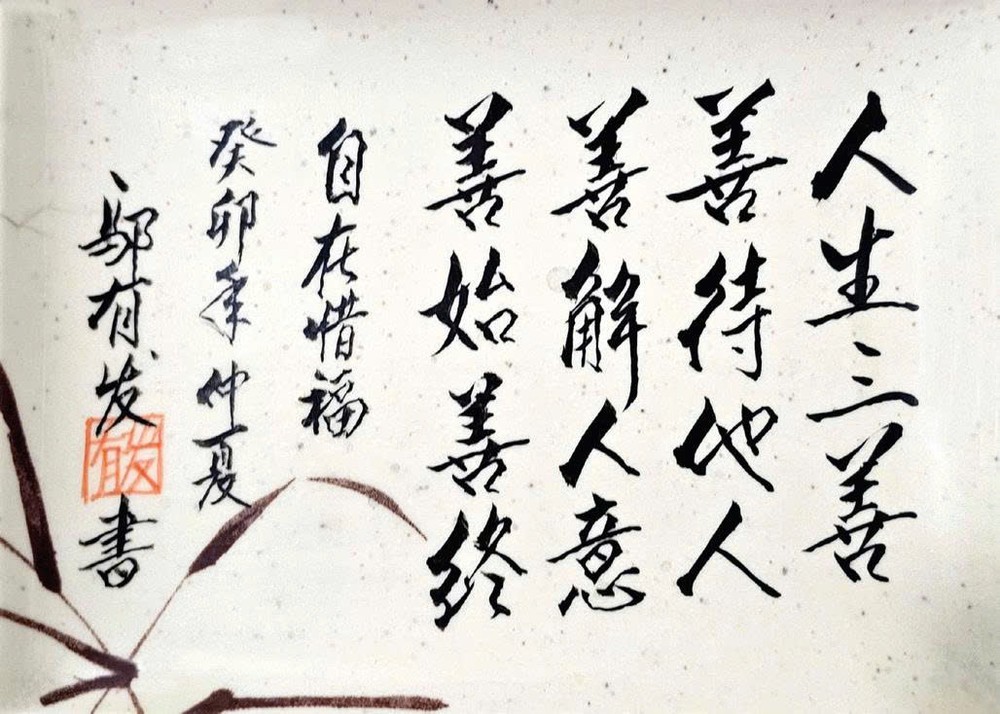 人生三善
善待他人
善解人意
善始善终
自在惜福
癸卯年仲夏
鄔有发書
有发